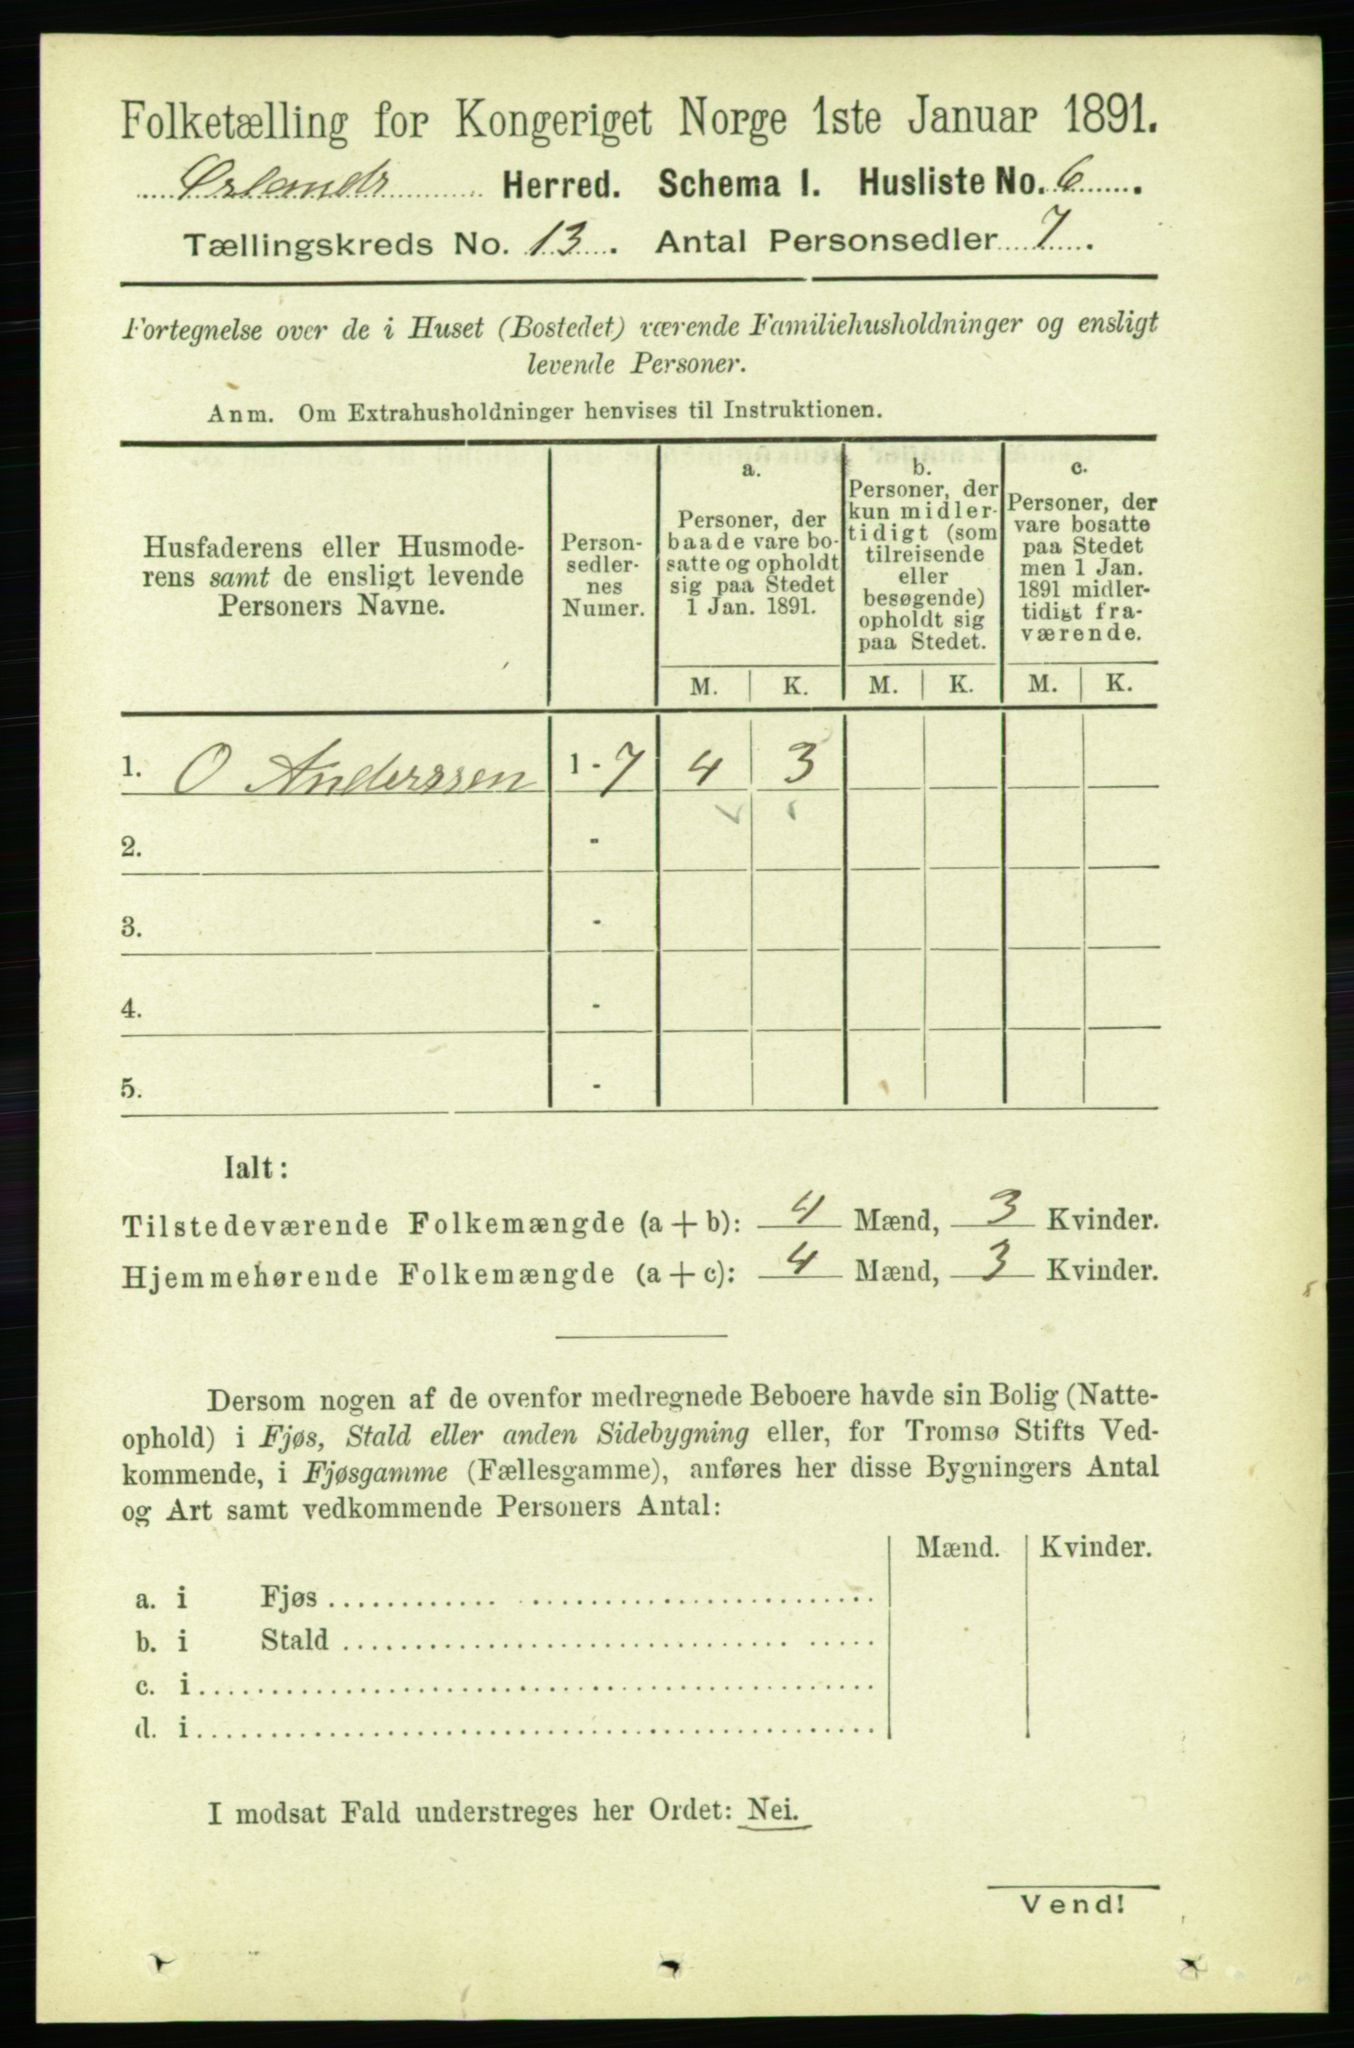 Folketælling for Kongeriget Norge 1ste Januar 1891.
Ørlandr Herred. Schema I. Husliste No. 6.
Tællingskreds No. 13. Antal Personsedler 7.
Fortegnelse over de i Huset (Bostedet) værende Familiehusholdninger og ensligt
levende Personer.
Anm. Om Extrahusholdninger henvises til Instruktionen.
Husfaderens eller Husmode-
rens samt de ensligt levende
Personers Navne.
Person-
sedler-
nes
Numer.
a.
Personer, der
baade vare bo-
satte og opholdt
sig paa Stedet
1 Jan. 1891.
b.
Personer, der
kun midler-
tidigt (som
tilreisende
eller
besøgende)
opholdt sig
paa Stedet.
c.
Personer, der
vare bosatte
paa Stedet
men 1 Jan.
1891 midler-
tidigt fra-
værende.
M. K. M. K. M. K.
1. O Anderssen 1-7 4 3
2. -
3. -
4. -
5. -
Ialt:
Tilstedeværende Folkemængde (a + b): 4 Mænd, 3 Kvinder.
Hjemmehørende Folkemængde (a + c): 4 Mænd, 3 Kvinder.
Dersom nogen af de ovenfor medregnede Beboere havde sin Bolig (Natte-
ophold) i Fjøs, Stald eller anden Sidebygning eller, for Tromsø Stifts Ved-
kommende, i Fjøsgamme (Fællesgamme), anføres her disse Bygningers Antal
og Art samt vedkommende Personers Antal:
Mænd. Kvinder.
a. i Fjøs
b. i Stald
c. i
d. i
I modsat Fald understreges her Ordet: Nei.
Vend!